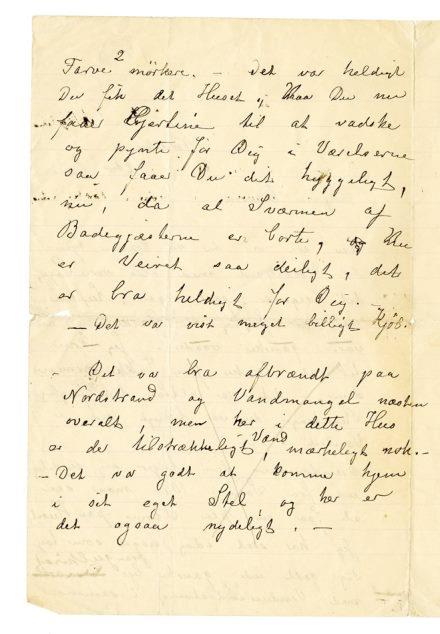 Farve 2 mörkere. – Det var heldigt
Du fik det Huset, naar Du nu
faaer Gjertine til at vadske
og pynte for Dig i Værelserne
saa faaer Du det hyggeligt,
nu, da al Sværmen af
Badegjæsterne er borte, og nu
er Veiret saa deiligt, det
er bra heldigt for Dig. –
– Det var vist meget billigt Kjöb.
– Det va bra afbrændt paa
Nordstrand og Vandmangel næsten
overalt, men her i dette Hus
er der tilstrækkeligt Vand, mærkeligt nok. –
– Det var godt at komme hjem
i sit eget Stel, og her er
det ogsaa nydeligt. –